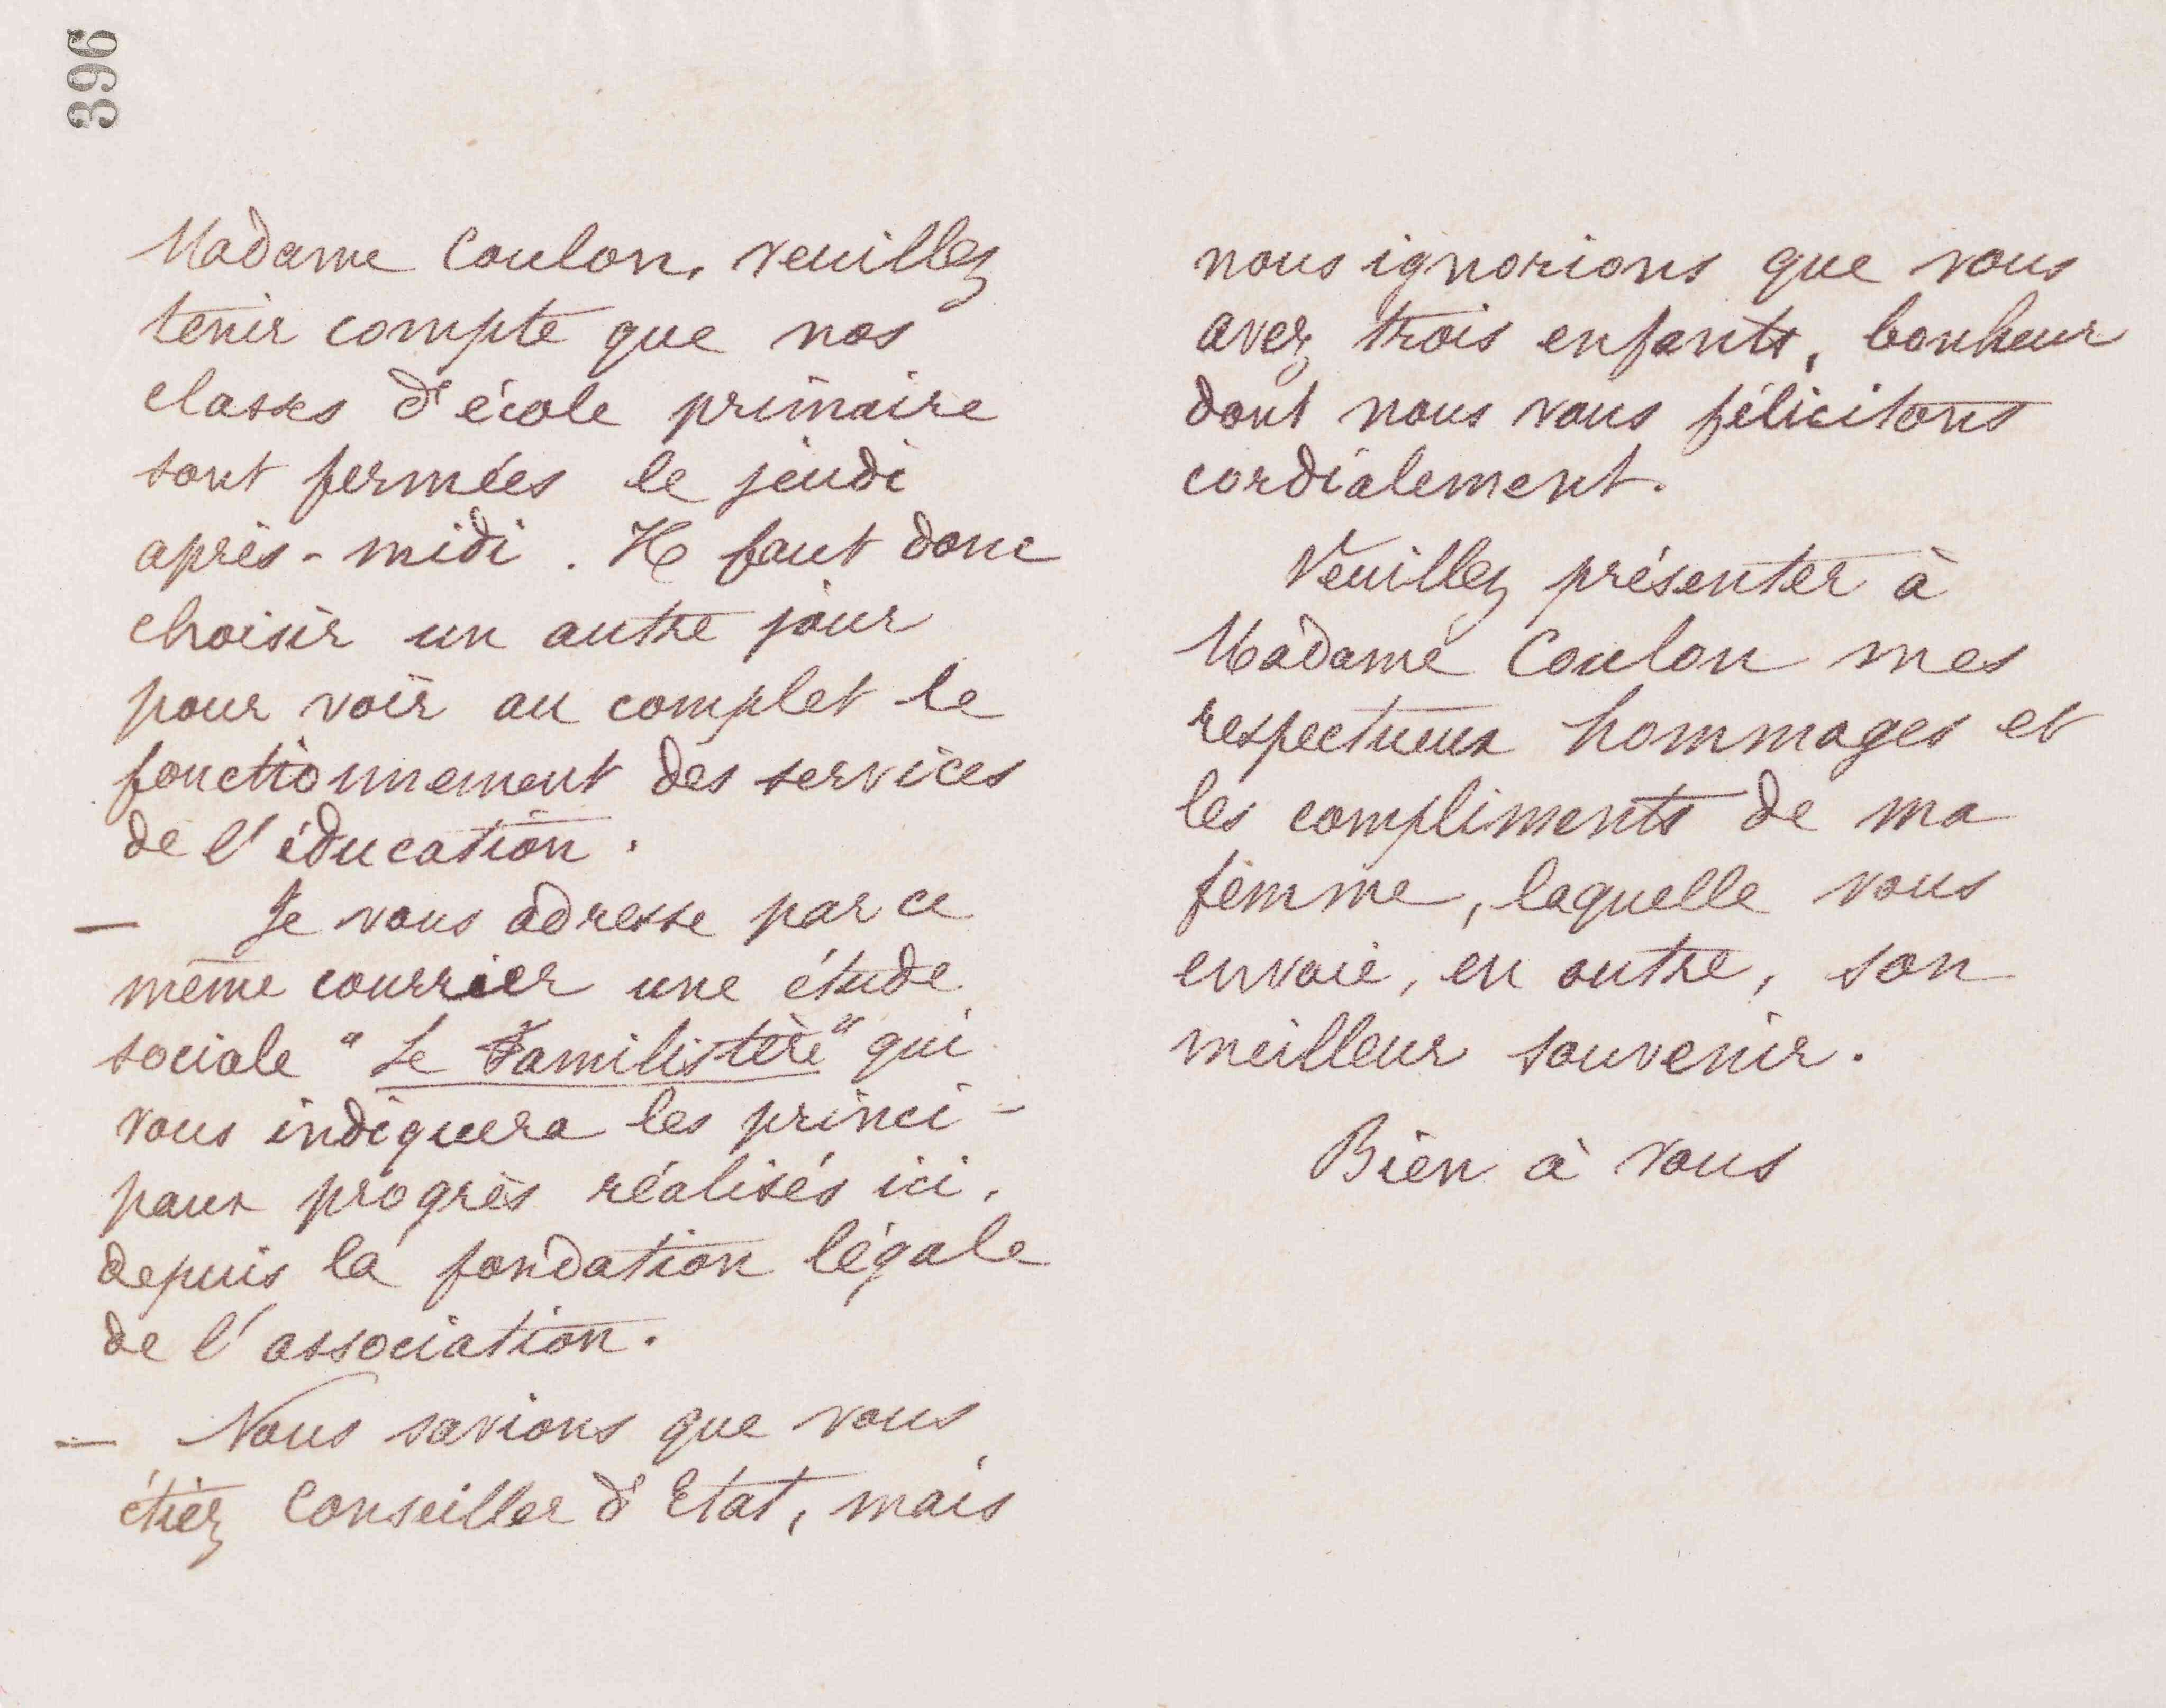 396
Madame Coulon, veuillez
tenir compte que nos
classes d'école primaire
sont fermées le jeudi
après-midi. Il faut donc
choisir un autre jour
pour voir au complet le
fonctionnement des services
de l'éducation.
— Je vous adresse par ce
même courrier une étude
sociale "Le Familistère" qui
vous indiquera les princi-
paux progrès réalisés ici,
depuis la fondation légale
de l'association.
— Nous savions que vous
étiez Conseiller d'Etat, mais
nous ignorions que vous
avez trois enfants, bonheur
dont nous vous félicitons
cordialement.
Veuillez présenter à
Madame Coulon mes
respectueux hommages et
les compliments de ma
femme, laquelle vous
envoie, en outre, son
meilleur souvenir.
Bien à vous